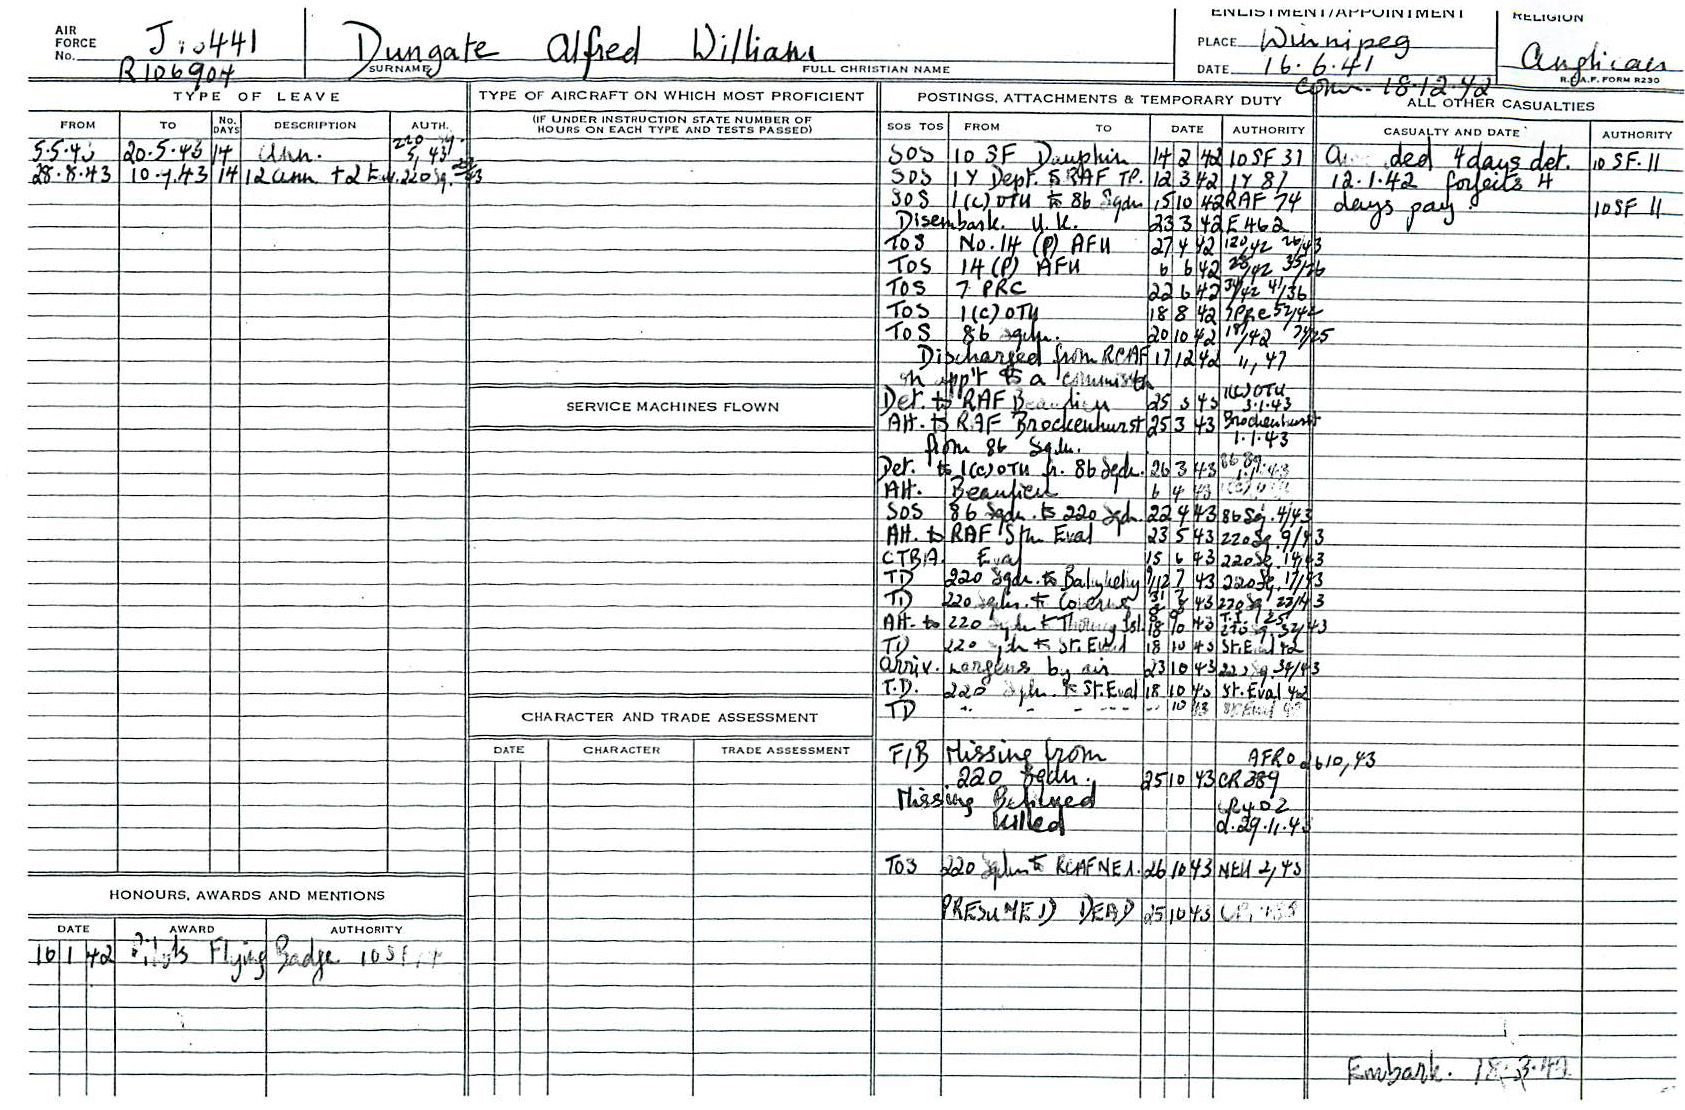 AIR FORCE No.
R106904
Dungate Alfred William
SURNAME FULL CHRISTIAN NAME
ENLISTMENT/APPOINTMENT
PLACE Winnipeg
DATE 16.6.41
18.12.42
RELIGION
Anglican
R.C.A.F. FORM R230
TYPE OF LEAVE
FROM TO No. DAYS DESCRIPTION AUTH.
5.5.43 20.5.43 14 Ann.
28.8.43 10.9.43 14 12 ann + 2 220 Sq.
HONOURS, AWARDS AND MENTIONS
DATE AWARD AUTHORITY
16 1 42 Pilots Flying Badge 10SF
TYPE OF AIRCRAFT ON WHICH MOST PROFICIENT
(IF UNDER INSTRUCTION STATE NUMBER OF
HOURS ON EACH TYPE AND TESTS PASSED)
SERVICE MACHINES FLOWN
CHARACTER AND TRADE ASSESSMENT
DATE CHARACTER TRADE ASSESSMENT
POSTINGS, ATTACHMENTS & TEMPORARY DUTY
SOS TOS FROM TO DATE AUTHORITY
SOS 10 SF Dauphin 14 2 42 10SF 37
SOS 1Y Dept. to RAF TP. 12 3 42 1Y 87
SOS 1(c) OTU to 86 Sqdn 15 10 42 RAF 74
Disembark. U.K. 23 3 42 E 462
TOS No. 14 (P) AFU 27 4 42
TOS 14 (P) AFU 6 6 42
TOS 7 PRC 22 6 42
TOS 1(c) OTU 18 8 42
TOS 86 Sqdn. 20 10 42
Discharged from RCAF 17 12 42 11, 47
on app't to a commission
Det. to RAF Beaulieu 25 3 43 1(c) OTU
3.1.43
Att. to RAF Brockenhurst 25 3 43 Brockenhurst
from 86 Sqdn. 1.1.43
Det. to 1(c) OTU fr. 86 Sqdn. 26 3 43
Att. Beaulieu 6 4 43
SOS 86 Sqdn. to 220 Sqdn. 22 4 43 86 Sq. 4/43
Att. to RAF Stn Eval 23 5 43 220 Sq 9/43
CTBA. Eval 15 6 43 220 Sq. 14/43
TD 220 Sqdn. to 7 43 220 Sq. 17/43
TD 220 Sqdn. to 43 220 Sq
Att. to 220 Sqdn to Thorney Isl. 18 10 43
TD 220 Sqdn to St. Eval 18 10 43 St. Eval 42
Arriv. by air 23 10 43 220 Sq. 34/43
T.D. 220 Sqdn. to St. Eval 18 10 43 St. Eval 42
TD
F/B Missing from AFRO 2610, 43
220 Sqdn. 25 10 43 CR 389
Missing Believed
killed d. 29.11.43
TOS 220 Sqdn to RCAF NE 1. 26 10 43
PRESUMED DEAD 25 10 43
ALL OTHER CASUALTIES
CASUALTY AND DATE AUTHORITY
4 days det. 10 SF. 11
12.1.42 forfeits 4
days pay. 10SF 11
Embark. 18.3.42